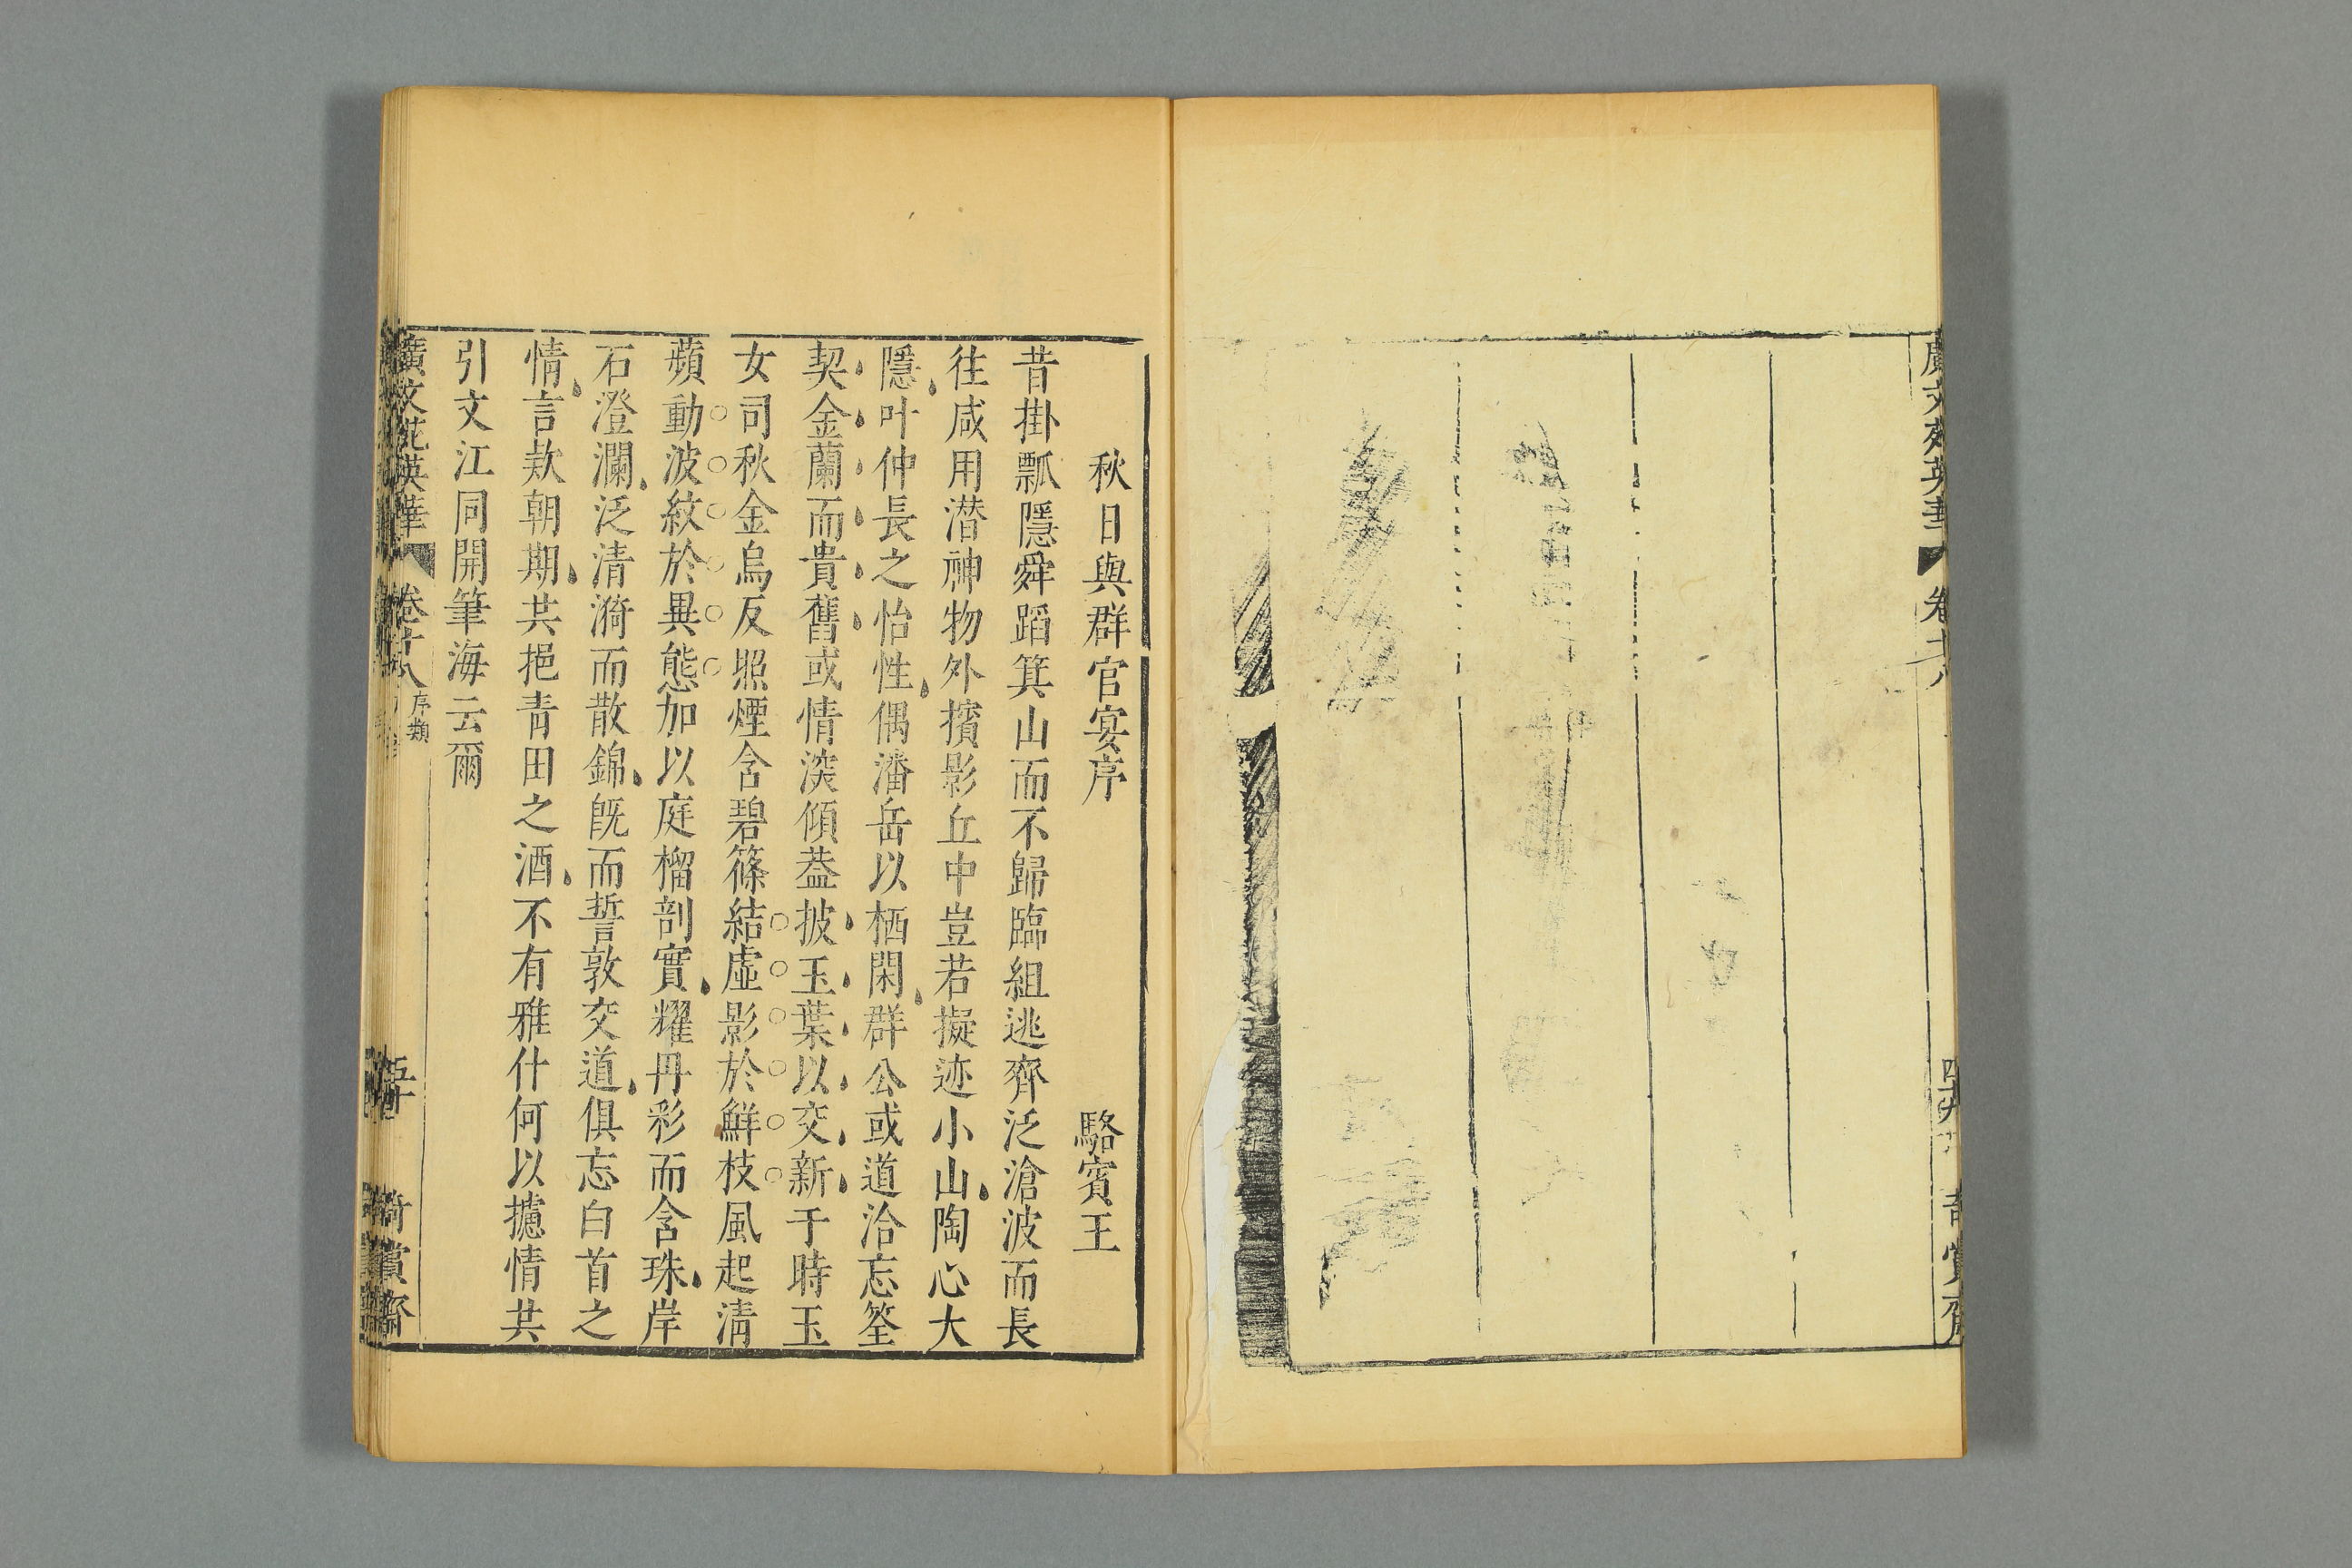 秋日與群官宴序 駱賓王
昔掛瓢隱舜蹈箕山而不歸臨組逃齊泛滄波而長
往咸用潜神物外擯影丘中豈若擬迹小山陶心大
隱叶仲長之怡性偶潘岳以栖閑群公或道洽忘筌
契金蘭而貴舊或情淡傾葢披玉葉以交新于時玉
女司秋金烏反照煙含碧篠結虛影於鮮枝風起清
蘋動波紋於異態加以庭榴剖實耀丹彩而含珠岸
石澄瀾泛清漪而散錦旣而誓敦交道俱忘白首之
情言款朝期共挹青田之酒不有雅什何以攄情共
引文江同開筆海云爾
廣文苑英華 卷廿八 序類 五十 奇賞齋
廣文苑英華 卷廿八 奇賞齋